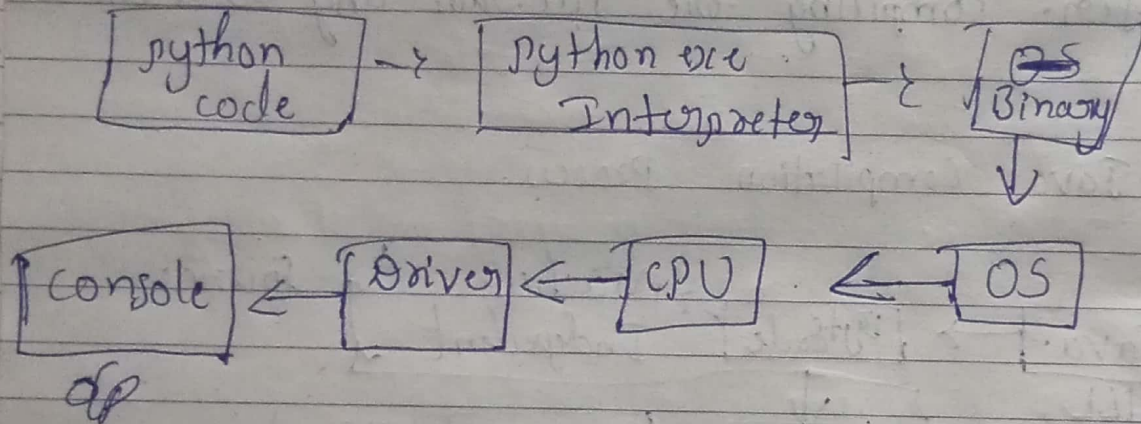 python
code
Python exe
Interpreter
OS
Binary
Console
Driver
CPU
OS
o/p